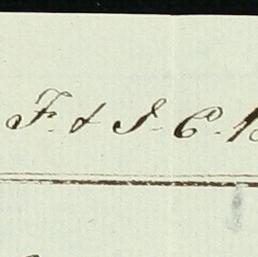 F. & J. C.